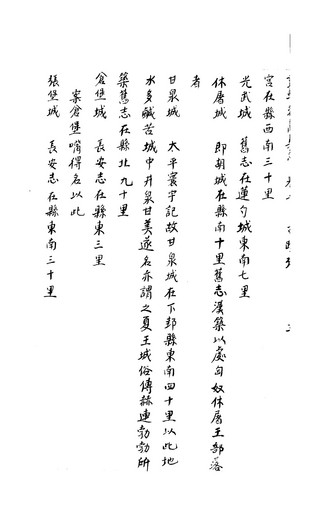 宮在縣西南三十里
光武城　舊志在蓮勺城東南七里
休屠城　即朝城在縣南十里舊志漢築以處匈奴休屠王部落
者
甘泉城　太平寰宇記故甘泉城在下邽縣東南四十里以此地
水多鹹苦城中井泉甘美遂名亦謂之夏王城俗傳赫連勃勃所
築舊志在縣北九十里
倉堡城　長安志在縣東三里
案倉堡嘴得名以此
張堡城　長安志在縣東南三十里